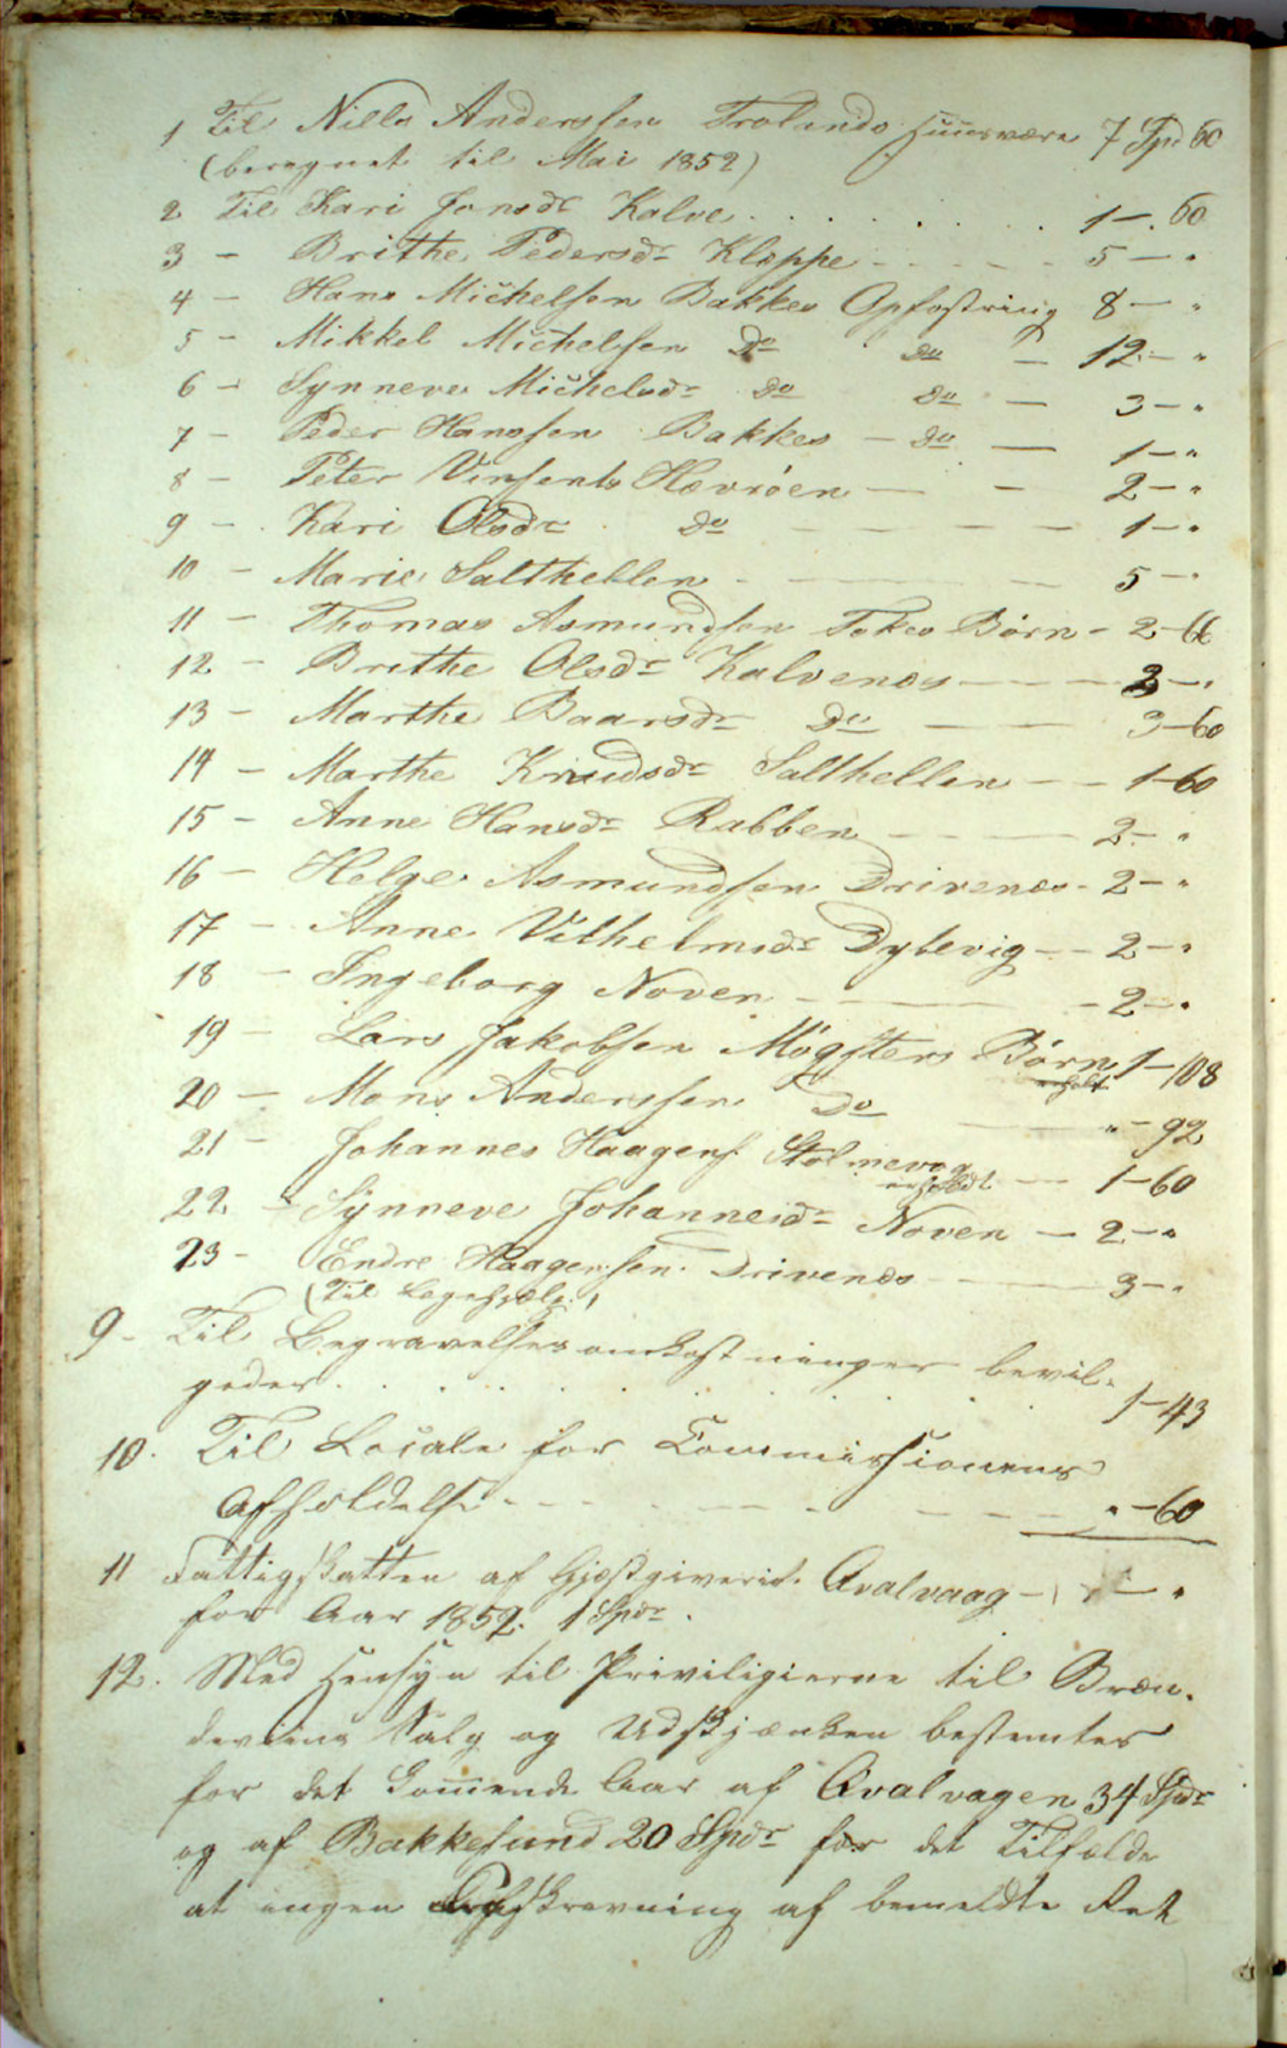 1 Til Nills Anderssen Trolands Huusvære 7 Spd 60
(beregnet til Mai 1852)
2 Til Kari Jonsdr Kalve . . . . . . . 1 - 60
3 - Brithe Pedersdr Kleppe - - - - - 5 - "
4 - Hans Michelsen Bakkes Opfostring 8 - "
5 - Mikkel Michelsen Do Do - 12 - "
6 - Synneve Michelsdr Do Do - 3 - "
7 - Peder Hanssen Bakkes - Do - 1 - "
8 - Peter Vinsents Hevrøen - - 2 - "
9 - Kari Olsdr Do - - - - 1 - "
10 - Marie Salthellen - - - 5 - "
11 - Thomas Asmundsen Tokes Børn - 2 - 66
12 - Brithe Olsdr Kalvenes - - - 2 - "
13 - Marthe Baarsdr Do - - 3 - 60
14 - Marthe Knudsdr Salthellen - - 1 - 60
15 - Anne Hansdr Rabben - - - 2 - "
16 - Helge Asmundsen Drivenes - 2 - "
17 - Anne Vilhelmsdr Dylevig - - 2 - "
18 - Ingeborg Noven - - - 2 - "
19 - Lars Jakobsen Møgsters Børn 1 - 108
20 - Mons Anderssen Do - - " - 92
21 - Johannes Haagens. Stolmevog - 1 - 60
22 - Synneve Johannesdr Noven - 2 - "
23 - Endre Haagensen Drivenes - 3 - "
(Til Legehjælp)
9 - Til Begravelsesomkostninger bevil-
geder . . . . . . . . . . 1 - 43
10. Til Locale for Commissionens
Afholdelse - - - - - - - " - 60
11 Fattigskatten af Gjæstgiveriet Qvalvaag - "
for Aar 1852. 1 Spdr.
12. Med Hensyn til Priviligierne til Bræn-
deviins Salg og Udskjænken bestemtes
for det kommende Aar af Qvalvagen 34 Spdr
og af Bakkesund 20 Spdr for det Tilfælde
at ingen Afskrevning af bemeldte Ret